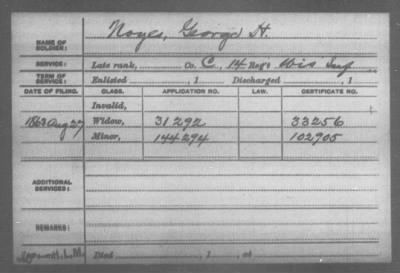 NAME OF SOLDIER: Noyes, George H.
SERVICE: Late rank, Co. C, 14 Reg't Wis Inf
TERM OF SERVICE: Enlisted , 1 Discharged , 1
DATE OF FILING. CLASS. APPLICATION NO. LAW. CERTIFICATE NO.
Invalid,
1863 Aug 27 Widow, 31292 33256
Minor, 144294 102905
ADDITIONAL SERVICES:
REMARKS:
Died , 1 , at